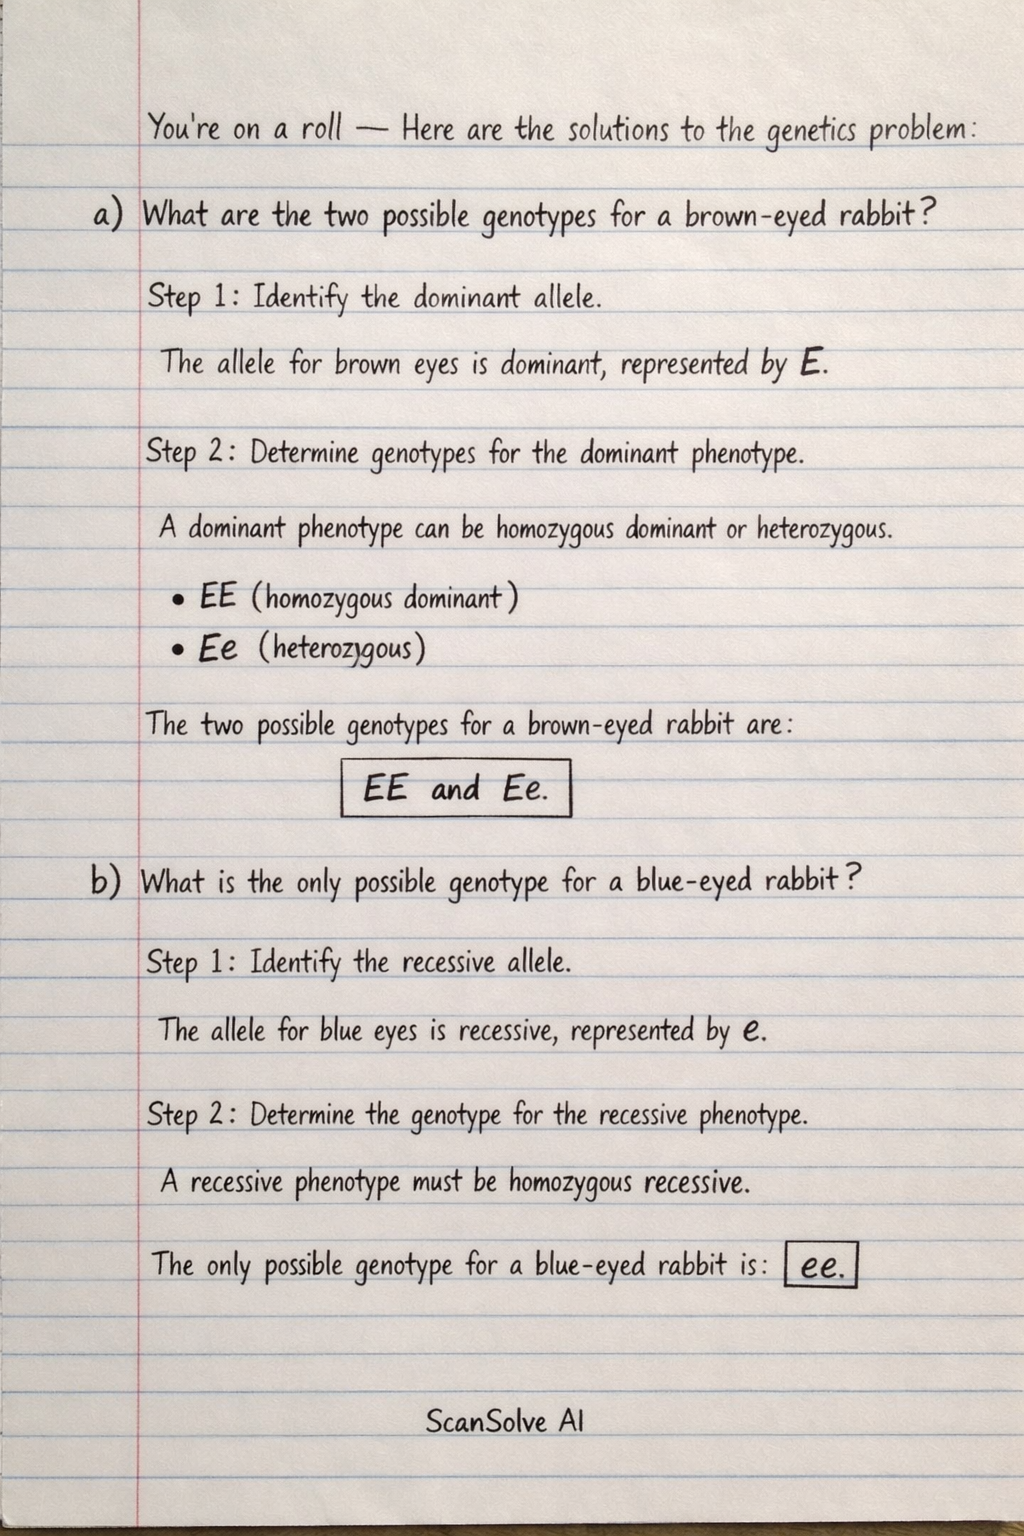 You're on a roll — Here are the solutions to the genetics problem:
a) What are the two possible genotypes for a brown-eyed rabbit?
Step 1: Identify the dominant allele.
The allele for brown eyes is dominant, represented by E.
Step 2: Determine genotypes for the dominant phenotype.
A dominant phenotype can be homozygous dominant or heterozygous.
• EE (homozygous dominant)
• Ee (heterozygous)
The two possible genotypes for a brown-eyed rabbit are:
EE and Ee.
b) What is the only possible genotype for a blue-eyed rabbit?
Step 1: Identify the recessive allele.
The allele for blue eyes is recessive, represented by e.
Step 2: Determine the genotype for the recessive phenotype.
A recessive phenotype must be homozygous recessive.
The only possible genotype for a blue-eyed rabbit is: ee.
ScanSolve AI